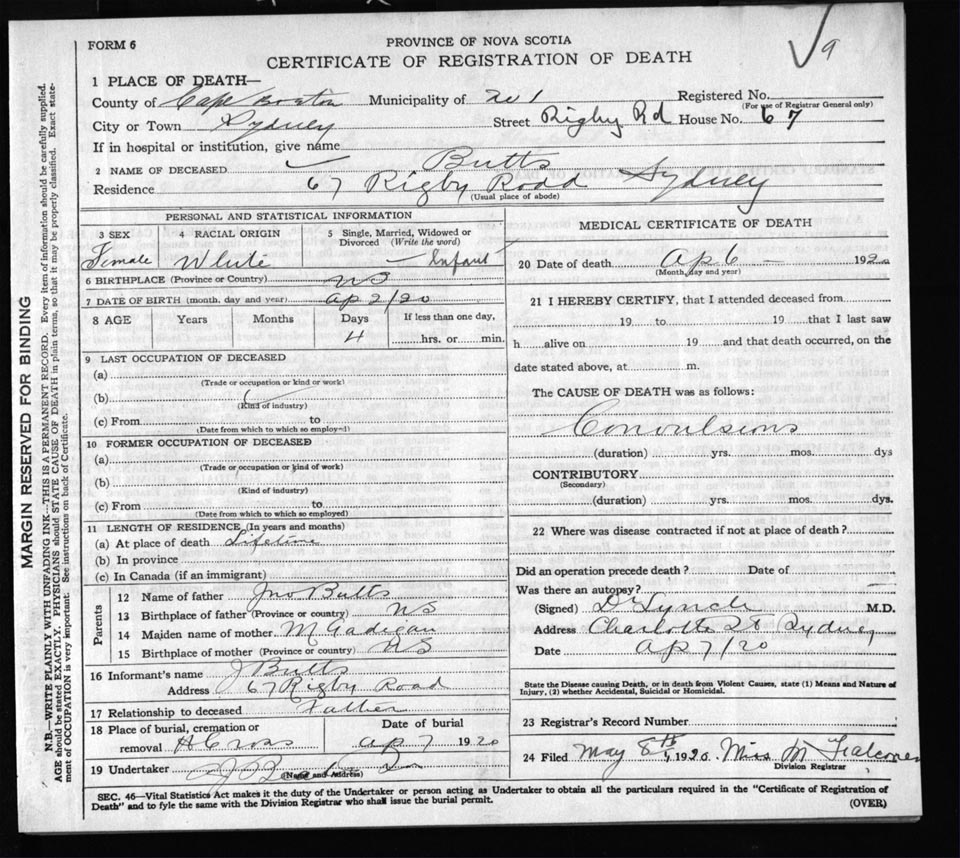 9
FORM 6
PROVINCE OF NOVA SCOTIA
CERTIFICATE OF REGISTRATION OF DEATH
1 PLACE OF DEATH—
County of Cape Breton Municipality of No 1 Registered No.
(For use of Registrar General only)
City or Town Sydney Street Rigby Rd House No. 67
If in hospital or institution, give name
2 NAME OF DECEASED Butts
Residence 67 Rigby Road Sydney
(Usual place of abode)
PERSONAL AND STATISTICAL INFORMATION
3 SEX 4 RACIAL ORIGIN 5 Single, Married, Widowed or Divorced (Write the word)
Female White Infant
6 BIRTHPLACE (Province or Country) NS
7 DATE OF BIRTH (month, day and year) Ap 2/20
8 AGE Years Months Days If less than one day,
4 hrs. or min.
9 LAST OCCUPATION OF DECEASED
(a)
(Trade or occupation or kind or work)
(b)
(Kind of industry)
(c) From to
(Date from which to which so employed)
10 FORMER OCCUPATION OF DECEASED
(a)
(Trade or occupation or kind of work)
(b)
(Kind of industry)
(c) From to
(Date from which to which so employed)
11 LENGTH OF RESIDENCE (In years and months)
(a) At place of death Lifetime
(b) In province
(c) In Canada (if an immigrant)
Parents
12 Name of father Jno Butts
13 Birthplace of father (Province or country) NS
14 Maiden name of mother M Gadigan
15 Birthplace of mother (Province or country) NS
16 Informant's name J Butts
Address 67 Rigby Road
17 Relationship to deceased Father
18 Place of burial, cremation or removal H Cross Date of burial Ap 7 1920
19 Undertaker J
(Name and Address)
MEDICAL CERTIFICATE OF DEATH
20 Date of death Ap 6 1920
(Month, day and year)
21 I HEREBY CERTIFY, that I attended deceased from
19 to 19 that I last saw
h alive on 19 and that death occurred, on the
date stated above, at m.
The CAUSE OF DEATH was as follows:
Convulsions
(duration) yrs. mos. dys
CONTRIBUTORY
(Secondary)
(duration) yrs. mos. dys.
22 Where was disease contracted if not at place of death?
Did an operation precede death? Date of
Was there an autopsy?
(Signed) Dr Lynch M.D.
Address Charlotte St Sydney
Date Ap 7/20
State the Disease causing Death, or in death from Violent Causes, state (1) Means and Nature of
Injury, (2) whether Accidental, Suicidal or Homicidal.
23 Registrar's Record Number
24 Filed May 8th, 1920. Miss M Falconer
Division Registrar
SEC. 46—Vital Statistics Act makes it the duty of the Undertaker or person acting as Undertaker to obtain all the particulars required in the "Certificate of Registration of
Death" and to fyle the same with the Division Registrar who shall issue the burial permit. (OVER)
MARGIN RESERVED FOR BINDING
N.B.—WRITE PLAINLY WITH UNFADING INK—THIS IS A PERMANENT RECORD. Every item of information should be carefully supplied.
AGE should be stated EXACTLY. PHYSICIANS should STATE CAUSE OF DEATH in plain terms, so that it may be properly classified. Exact state-
ment of OCCUPATION is very important. See instructions on back of Certificate.